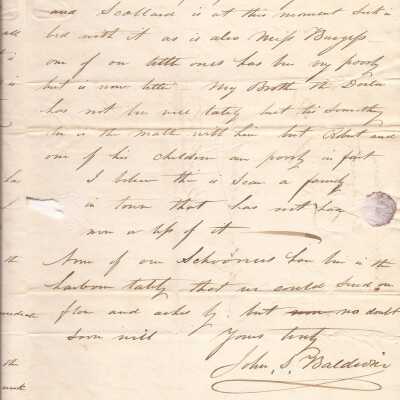 and Scollard is at this moment sick in
bed with it as is also Miss Burgess
one of our little ones has been very poorly
but is now better My Brother the Doctor
has not been well lately but his something
is the matter with him but Robert and
one of his children are poorly in fact
I believe there is scarce a family
in town that has not had
more or less of it
None of our Schooners have been in the
harbour lately that we could send on
flour and ashes by. but no doubt
soon will Yours truly
John. S. Baldwin